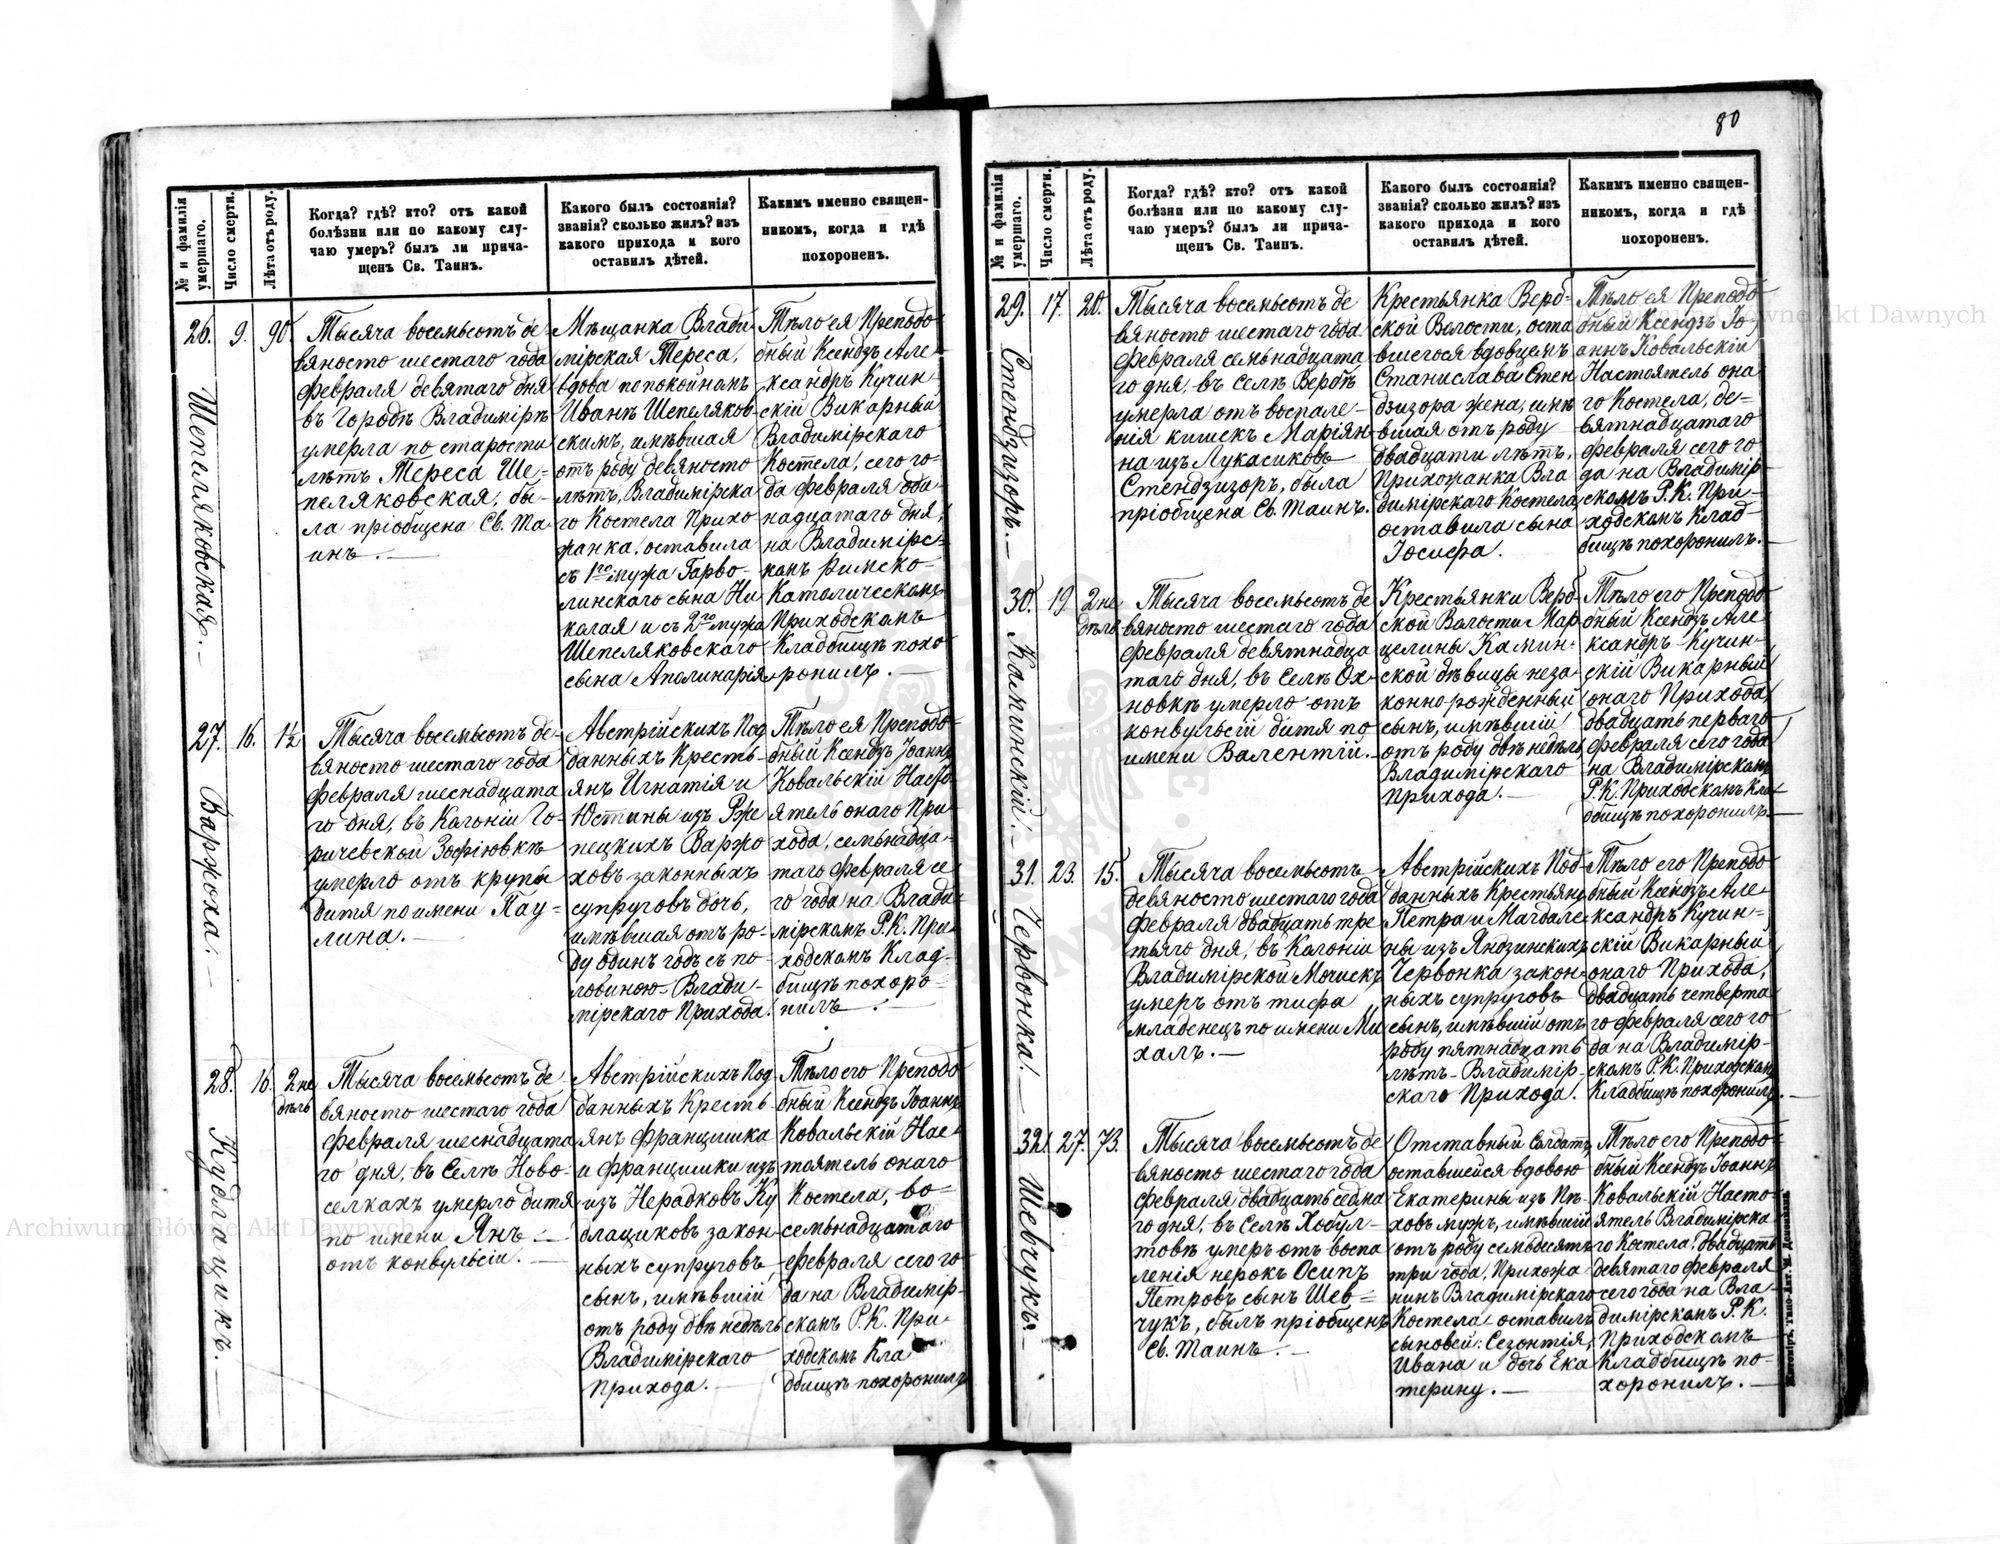 80
№ и фамилія умершаго.
Число смерти.
Лѣта отъ роду.
Когда? гдѣ? кто? отъ какой
болѣзни или по какому слу-
чаю умеръ? былъ ли прича-
щенъ Св. Таинъ.
Какого былъ состоянія?
званія? сколько жилъ? изъ
какого прихода и кого
оставилъ дѣтей.
Какимъ именно священ-
никомъ, когда и гдѣ
похороненъ.
26.
Шепеляковская.
9.
90.
Тысяча восемьсотъ де-
вяносто шестаго года
февраля девятаго дня
въ Городѣ Владимірѣ
умерла по старости
лѣтъ Тереса Ше-
пеляковская, бы-
ла пріобщена Св. Та-
инъ.
Мѣщанка Влади-
мірская Тереса,
вдова по покойномъ
Иванѣ Шепеляков-
скимъ, имѣвшая
отъ роду девяносто
лѣтъ, Владимірска
го Костела Прихо
жанка. оставила
съ 1го мужа Гарво-
линскаго сына Ни
колая и съ 2го мужа
Шепеляковскаго
сына Аполинарія
Тѣло ея Преподо
бный Ксендзъ Але-
ксандръ Кучин-
скій Викарный
Владимірскаго
Костела, сего го-
да февраля оди-
надцатаго дня,
на Владимірс-
комъ Римско-
Католическомъ
Приходскомъ
Кладбищѣ похо
ронилъ.
27.
Варжоха.
16.
1½
Тысяча восемьсотъ де-
вяносто шестаго года
февраля шеснадцата
го дня, въ Колоніи Го-
ричевской Зофіювкѣ
умерло отъ крупы
дитя по имени Пау-
лина.
Австрійскихъ Под
данныхъ Кресть-
янъ Игнатія и
Юстины изъ Рже
пецкихъ Варжо
ховъ законныхъ
супруговъ дочь,
имѣвшая отъ ро-
ду одинъ годъ съ по-
ловиною Влади-
мірскаго Прихода.
Тѣло ея Преподо-
бный Ксендзъ Іоаннъ
Ковальскій Насто
ятель онаго При
хода, семьнадца-
таго февраля се
го года на Влади
мірскомъ Р.К. При
ходскомъ Клад-
бищѣ похоро-
нилъ.
28.
Кудлацикъ.
16.
2 не
дѣль
Тысяча восемьсотъ де
вяносто шестаго года
февраля шеснадцата
го дня, въ Селѣ Ново-
селкахъ умерло дитя
по имени Янъ
отъ конвульсіи.
Австрійскихъ Под
данныхъ Кресть-
янъ Францишка
и Францишки изъ
изъ Нерадковъ Ку
длациковъ закон
ныхъ супруговъ
сынъ, имѣвшій
отъ роду двѣ недѣль
Владимірскаго
Прихода.
Тѣло его Преподо
бный Ксендзъ Іоаннъ
Ковальскій Нас-
тоятель онаго
Костела, во-
семьнадцатаго
февраля сего го
да на Владимір-
скомъ Р.К. При
ходскомъ Кла
дбищѣ похоронилъ
№ и фамилія умершаго.
Число смерти.
Лѣта отъ роду.
Когда? гдѣ? кто? отъ какой
болѣзни или по какому слу-
чаю умеръ? былъ ли прича-
щенъ Св. Таинъ.
Какого былъ состоянія?
званія? сколько жилъ? изъ
какого прихода и кого
оставилъ дѣтей.
Какимъ именно священ-
никомъ, когда и гдѣ
похороненъ.
29.
Стендзизоръ.
17.
20.
Тысяча восемьсотъ де
вяносто шестаго года
февраля семьнадцата
го дня, въ Селѣ Вербѣ
умерла отъ воспале-
нія кишекъ Маріян-
на изъ Лукасиковъ
Стендзизоръ, была
пріобщена Св. Таинъ.
Крестьянка Верб-
ской Волости, оста
вшегося вдовцемъ
Станислава Стен
дзизора жена, имѣ
вшая отъ роду
двадцати лѣтъ,
Прихожанка Вла
димірскаго Костела
оставила сына
Іосифа.
Тѣло ея Преподо
бный Ксендзъ Іо
аннъ Ковальскій
Настоятель она
го Костела, де-
вятнадцатаго
февраля сего го
да на Владимір-
скомъ Р.К. При-
ходскомъ Клад-
бищѣ похоронилъ.
30.
Каминскій.
19
2 не
дѣль
Тысяча восемьсотъ де
вяносто шестаго года
февраля девятнадца
таго дня, въ Селѣ Ох-
новкѣ умерло отъ
конвульсіи дитя по
имени Валентій.
Крестьянки Верб
ской Волости Мар
целины Камин-
ской дѣвицы неза
коннорожденный
сынъ, имѣвшій
отъ роду двѣ недѣль
Владимірскаго
Прихода.
Тѣло его Преподо
бный Ксендзъ Але
ксандръ Кучин-
скій Викарный
онаго Прихода,
двадцать перваго
февраля сего года
на Владимірскомъ
Р.К. Приходскомъ Кла
дбищѣ похоронилъ.
31.
Червонка.
23.
15.
Тысяча восемьсотъ
девяносто шестаго года
февраля двадцать тре
тьяго дня, въ Колоніи
Владимірской
умеръ отъ тифа
младенецъ по имени Ми
халъ.
Австрійскихъ Под-
данныхъ Крестьянъ
Петра и Магдале
ны изъ Яндзинскихъ
Червонка закон-
ныхъ супруговъ
сынъ, имѣвшій отъ
роду пятнадцать
лѣтъ Владимір-
скаго Прихода.
Тѣло его Преподо
бный Ксендзъ Але-
ксандръ Кучин-
скій Викарный
онаго Прихода,
двадцать четверта
го февраля сего го
да на Владимір-
скомъ Р.К. Приходскомъ
Кладбищѣ похоронилъ.
32.
Шевчукъ.
27.
73.
Тысяча восемьсотъ де
вяносто шестаго года
февраля двадцать седма
го дня, въ Селѣ Хобул-
товѣ умеръ отъ воспа
ленія нерокъ Осипъ
Петровъ сынъ Шев-
чукъ, былъ пріобщенъ
Св. Таинъ.
Отставный Солдатъ,
оставшейся вдовою
Екатерины изъ Пѣ-
ховъ мужъ, имѣвшій
отъ роду семдесятъ
три года, Прихожа
нинъ Владимірскаго
Костела оставилъ
сыновей: Сезонтія,
Ивана и дочь Ека
терину.
Тѣло его Преподо-
бный Ксендзъ Іоаннъ
Ковальскій Насто-
ятель Владимірска
го Костела, двадцать
девятаго февраля
сего года на Вла-
димірскомъ Р.К.
Приходскомъ
Кладбищѣ по-
хоронилъ.
Archiwum Główne Akt Dawnych
Archiwum Główne Akt Dawnych